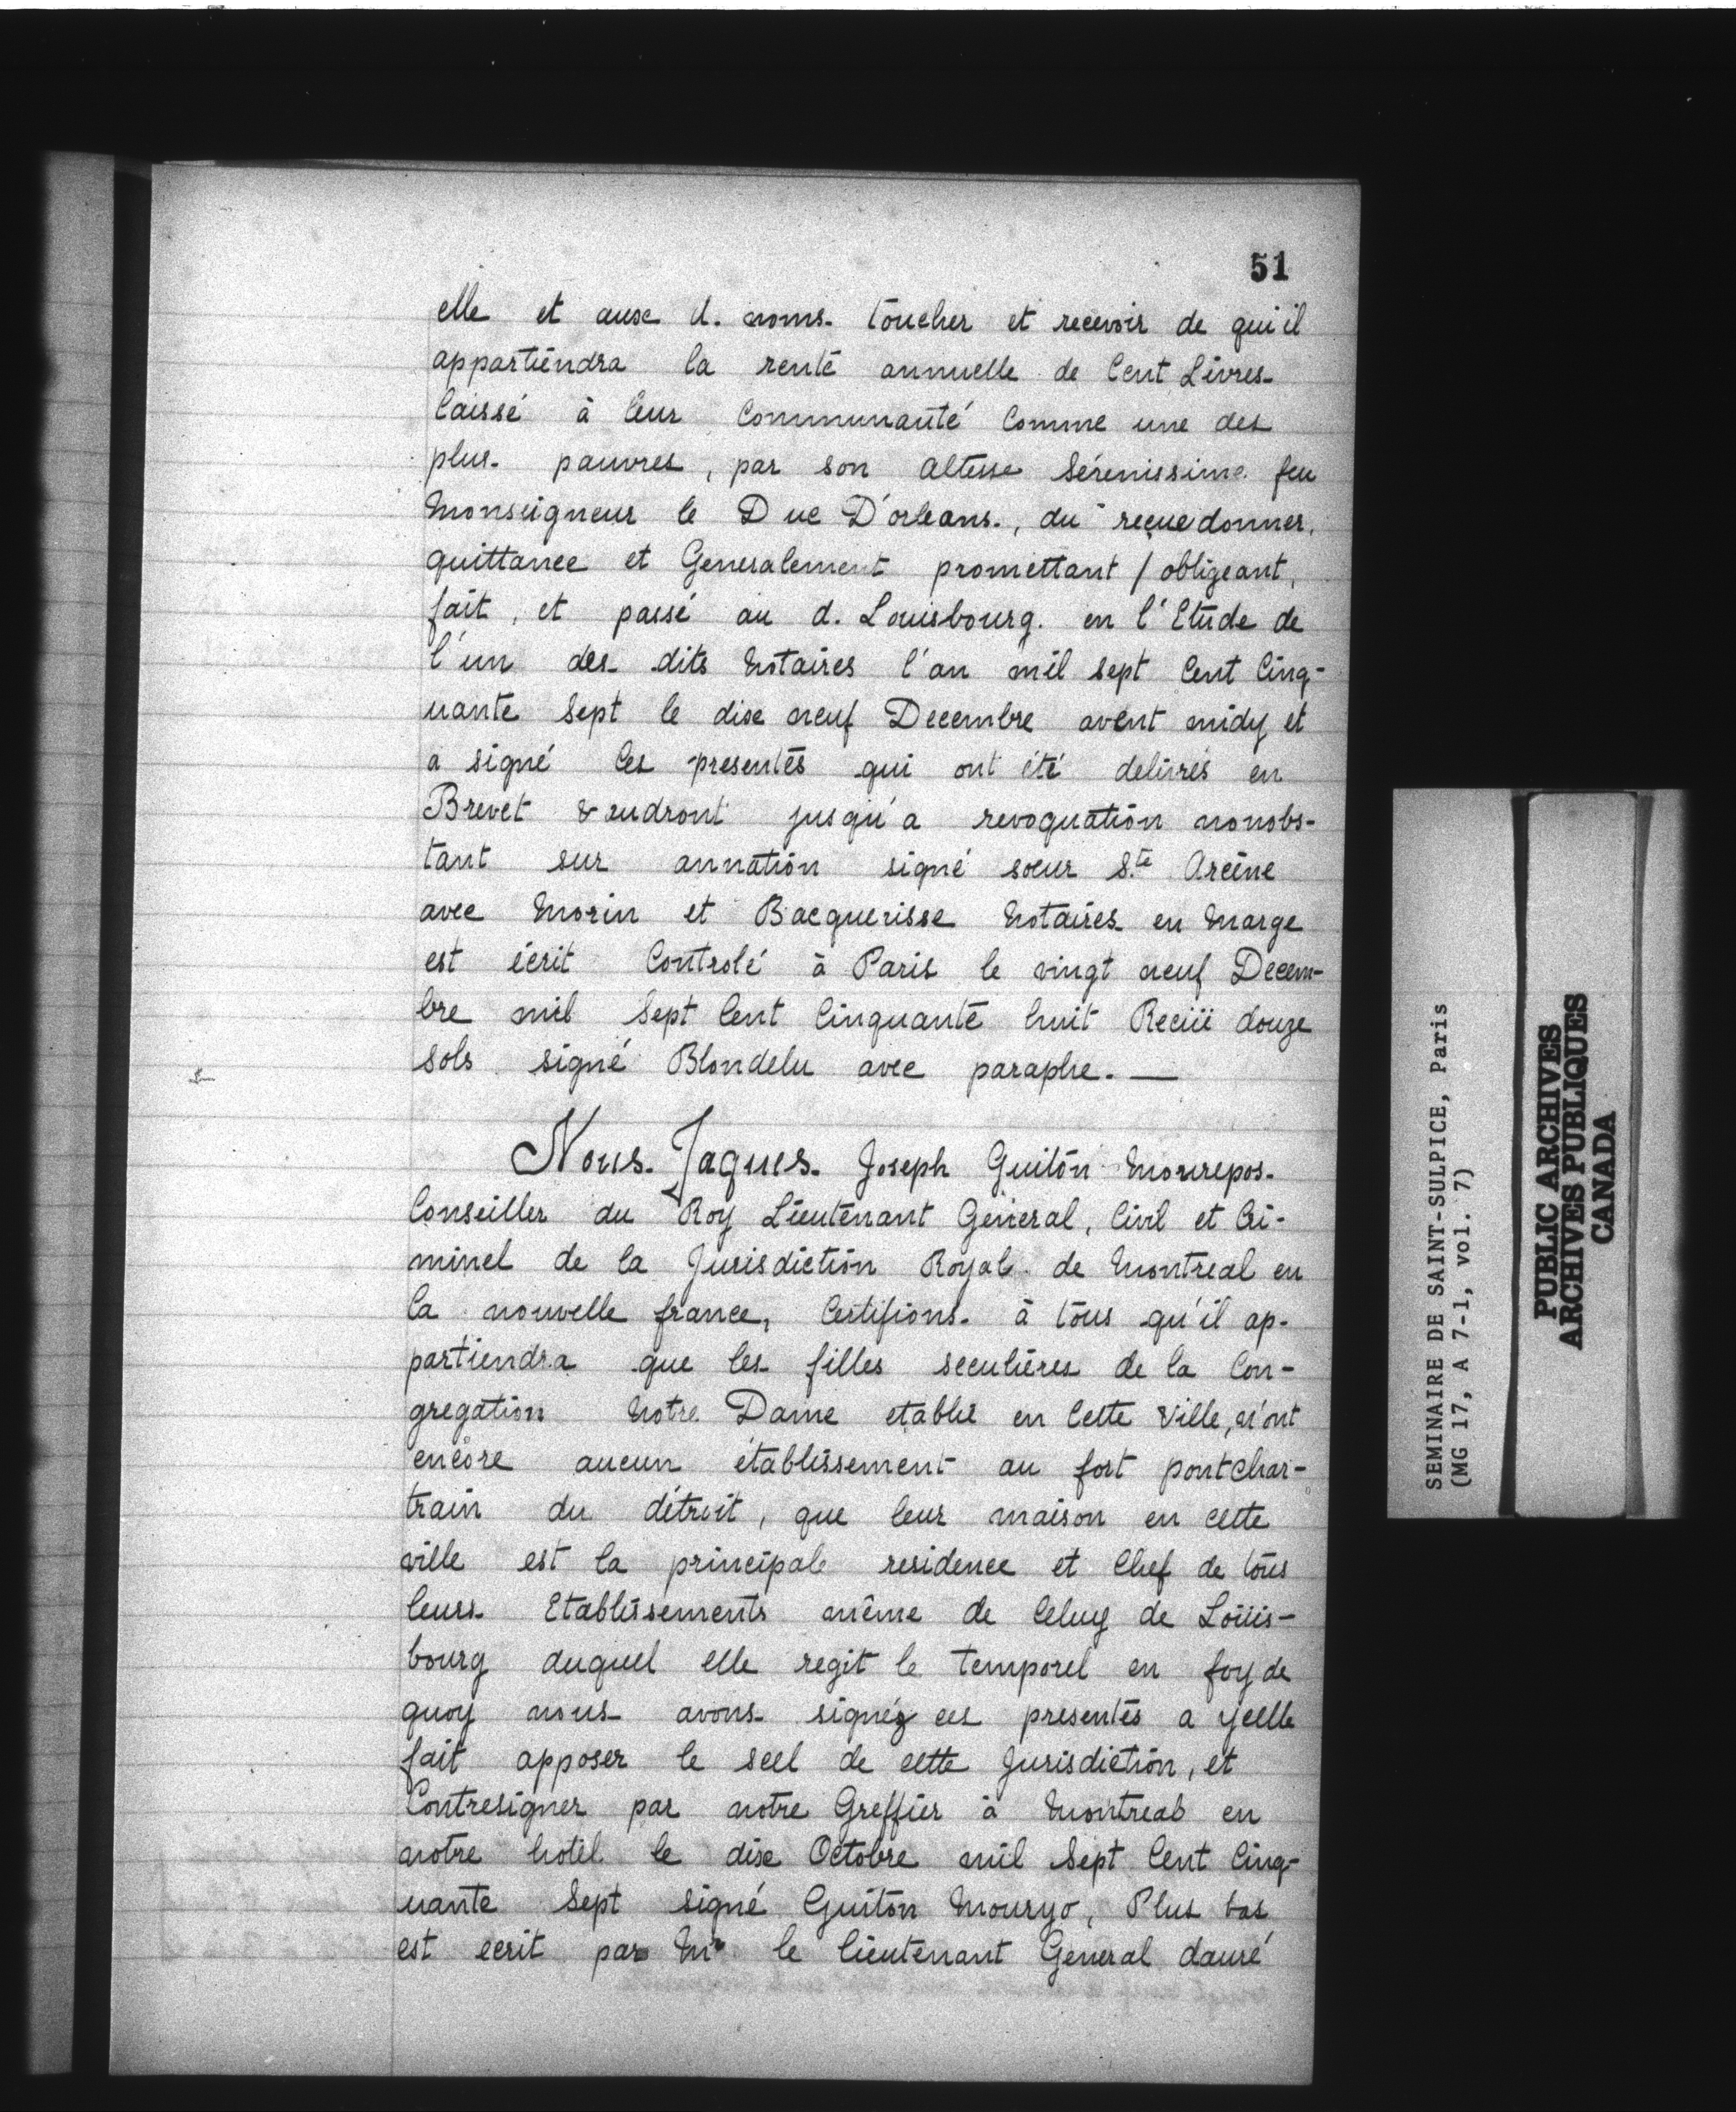 51
elle et aux d. noms. toucher et recevoir de qui il
appartiendra la rente annuelle de Cent Livres
laissé à leur Communauté Comme une des
plus pauvres, par son altesse Sérenissime feu
Monseigneur le Duc D'orleans., du reçue donner,
quittance et Generalement promettant / obligeant,
fait, et passé au d. Louisbourg. en l'Etude de
l'un des dits Notaires l'an mil sept Cent Cinq-
uante Sept le dix neuf Decembre avent midy et
a signé les presentes qui ont été delivrés en
Brevet & audront jusqu'a revoquation nonobs-
tant sur annation signé soeur Ste Arcine
avec Morin et Bacquerisse Notaires en Marge
est écrit Controlé à Paris le vingt neuf Decem-
bre mil Sept Cent Cinquante huit Reçüi douze
sols signé Blondelu avec paraphe. —
Nous. Jaques. Joseph Guitön Mourepos.
Conseiller du Roy Lieutenant General, Civil et Cri-
minel de la Jurisdiction Royale de Montreal en
la nouvelle france, Certifions. à tous qu'il ap-
partiendra que les filles seculières de la Con-
gregation Notre Dame etablie en Cette Ville, n'ont
encore aucun établissement au fort pontchar-
train du détroit, que leur maison en cette
ville est la principale residence et Chef de tous
leurs Etablissements même de Celuy de Loüis-
bourg duquel elle regit le temporel en foy de
quoy nous avons signéz ces presentes a ycelle
fait apposer le seel de cette Jurisdiction, et
Contresigner par notre Greffier à Montreal en
notre hotel le dix Octobre mil Sept Cent Cinq-
uante Sept signé Guiton Mouryo, Plus bas
est ecrit par Mr le lieutenant General dauré
SEMINAIRE DE SAINT-SULPICE, Paris
(MG 17, A 7-1, vol. 7)
PUBLIC ARCHIVES
ARCHIVES PUBLIQUES
CANADA